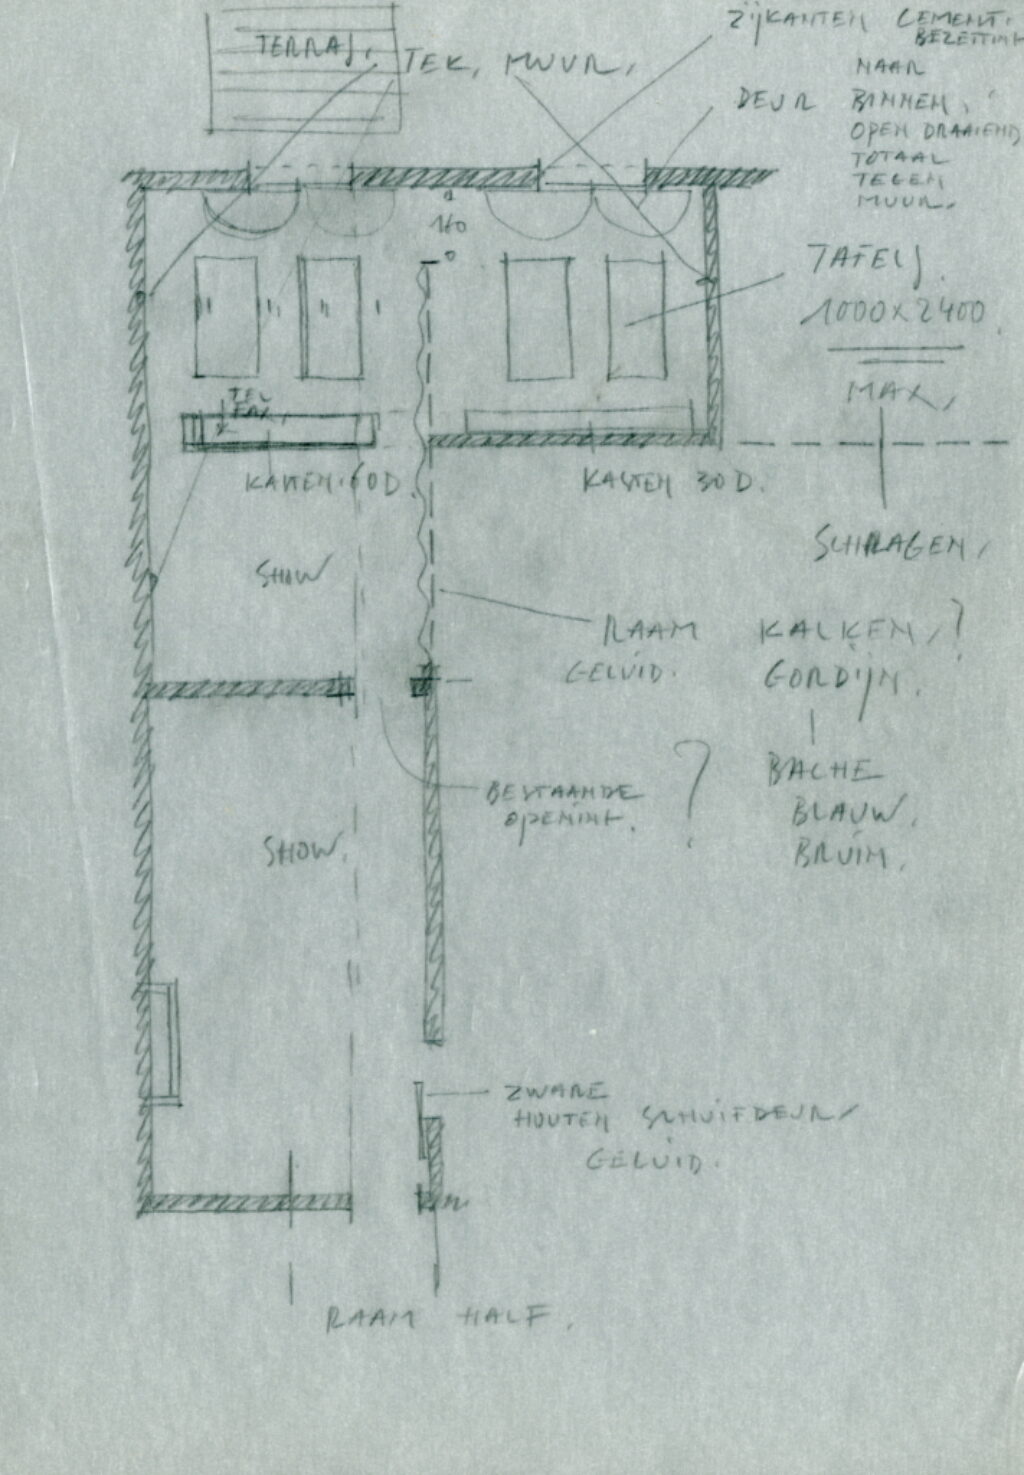 TERRAS.
TEK. MUUR.
ZIJKANTEN CEMENT.
BEZETTING
DEUR
NAAR
BINNEN,
OPEN DRAAIEND,
TOTAAL
TEGEN
MUUR.
160
TAFELS.
1000x2400.
MAX.
TEL
FAX,
KASTEN 60 D.
KASTEN 30 D.
SCHRAGEN,
SHOW
RAAM
GELUID.
KALKEN,?
GORDIJN.
BACHE
BLAUW.
BRUIN.
BESTAANDE
OPENING.
?
SHOW.
ZWARE
HOUTEN SCHUIFDEUR,
GELUID.
RAAM HALF.